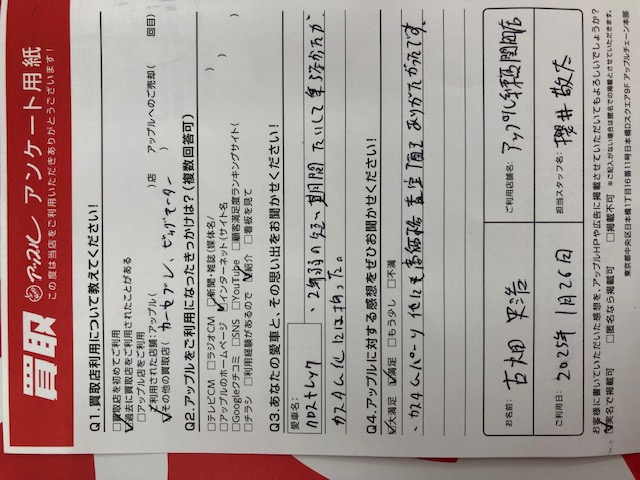 買取 アップル アンケート用紙
この度は当店をご利用いただきありがとうございます!
Q1.買取店利用について教えてください!
□買取店を初めてご利用
☑過去に買取店をご利用されたことがある
□アップル店をご利用
☑利用された店舗:アップル( )店 アップルへのご売却( 回目)
☑その他の買取店( カーセブン、ビッグモーター )
Q2.アップルをご利用になったきっかけは?(複数回答可)
□テレビCM □ラジオCM □新聞・雑誌(媒体名/ )
□アップルのホームページ ☑インターネット(サイト名 )
□Googleクチコミ □SNS □YouTube □顧客満足度ランキングサイト( )
□チラシ □利用経験があるので ☑紹介 □看板を見て
Q3.あなたの愛車と、その思い出をお聞かせください!
愛車名: クロストレック 、2年弱の短い期間
カスタム化には拘った。
Q4.アップルに対する感想をぜひお聞かせください!
☑大満足 ☑満足 □もう少し □不満
、カスタムパーツ他にも高価格査定頂き ありがたかったです。
お名前: 古畑 ご利用店舗名: アップル
ご利用日: 2025年 1月26日 担当スタッフ名: 櫻井 敬太
お客様に書いていただいた感想を、アップルHPや広告に掲載させていただいてもよろしいでしょうか?
☑実名で掲載可 □匿名なら掲載可 □掲載不可 ※ご記入がない場合は匿名での掲載とさせていただきます。
東京都中央区日本橋1丁目16番11号日本橋Dスクエア9F アップルチェーン本部